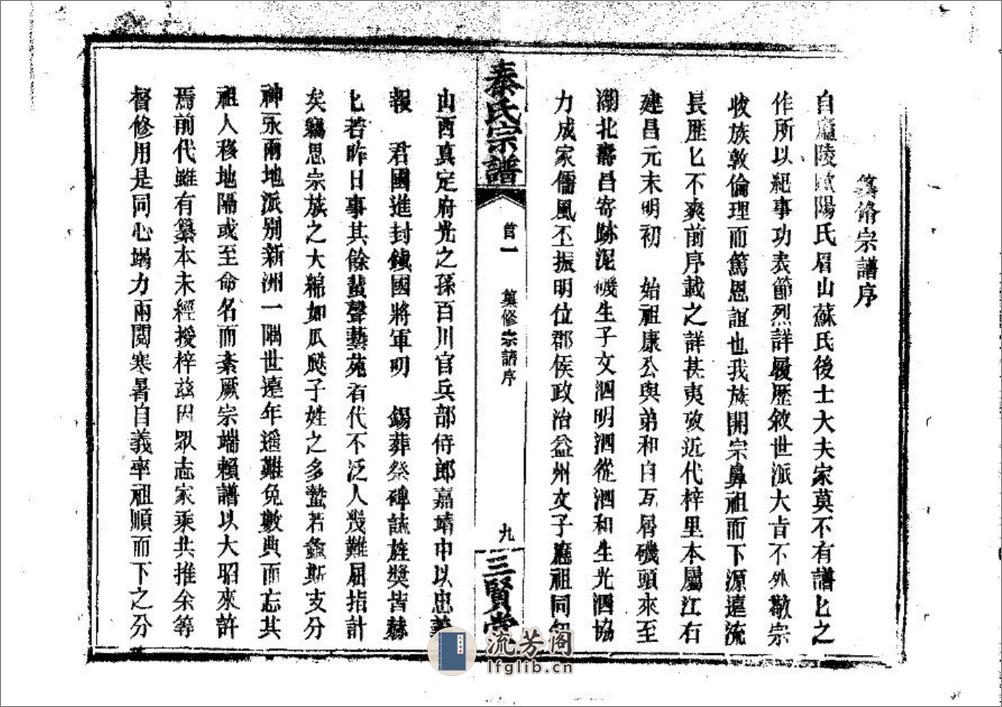 纂脩宗譜序
自廬陵歐陽氏眉山蘇氏後士大夫家莫不有譜匕之
作所以紀事功表節烈詳履歷敘世派大旨不外敬宗
收族敦倫理而篤恩誼也我族開宗鼻祖而下源遠流
長歷匕不爽前序載之詳甚夷攷近代梓里本屬江右
建昌元末明初 始祖康公與弟和自瓦屑磯頭來至
湖北壽昌寄跡泥磯生子文泗明泗從泗和生光泗協
力成家儒風丕振明位郡侯政治益州文子應祖同知
秦氏宗譜
首一
纂修宗譜序
九
三賢堂
山西真定府光之孫百川官兵部侍郎嘉靖中以忠義
報 君國進封鎮國將軍明 錫葬祭碑讌旌獎皆赫
匕若昨日事其餘蜚聲藝苑者代不泛人幾難屈指計
矣竊思宗族之大綿如瓜瓞子姓之多蟄若螽斯支分
神永兩地派別新洲一隅世遠年遥難免數典而忘其
祖人移地隔或至命名而紊厥宗端賴譜以大昭來許
焉前代雖有纂本未經授梓兹因眾志家乘共推余等
督修用是同心竭力兩閲寒暑自義率祖順而下之分
流芳阁
lfglib.cn